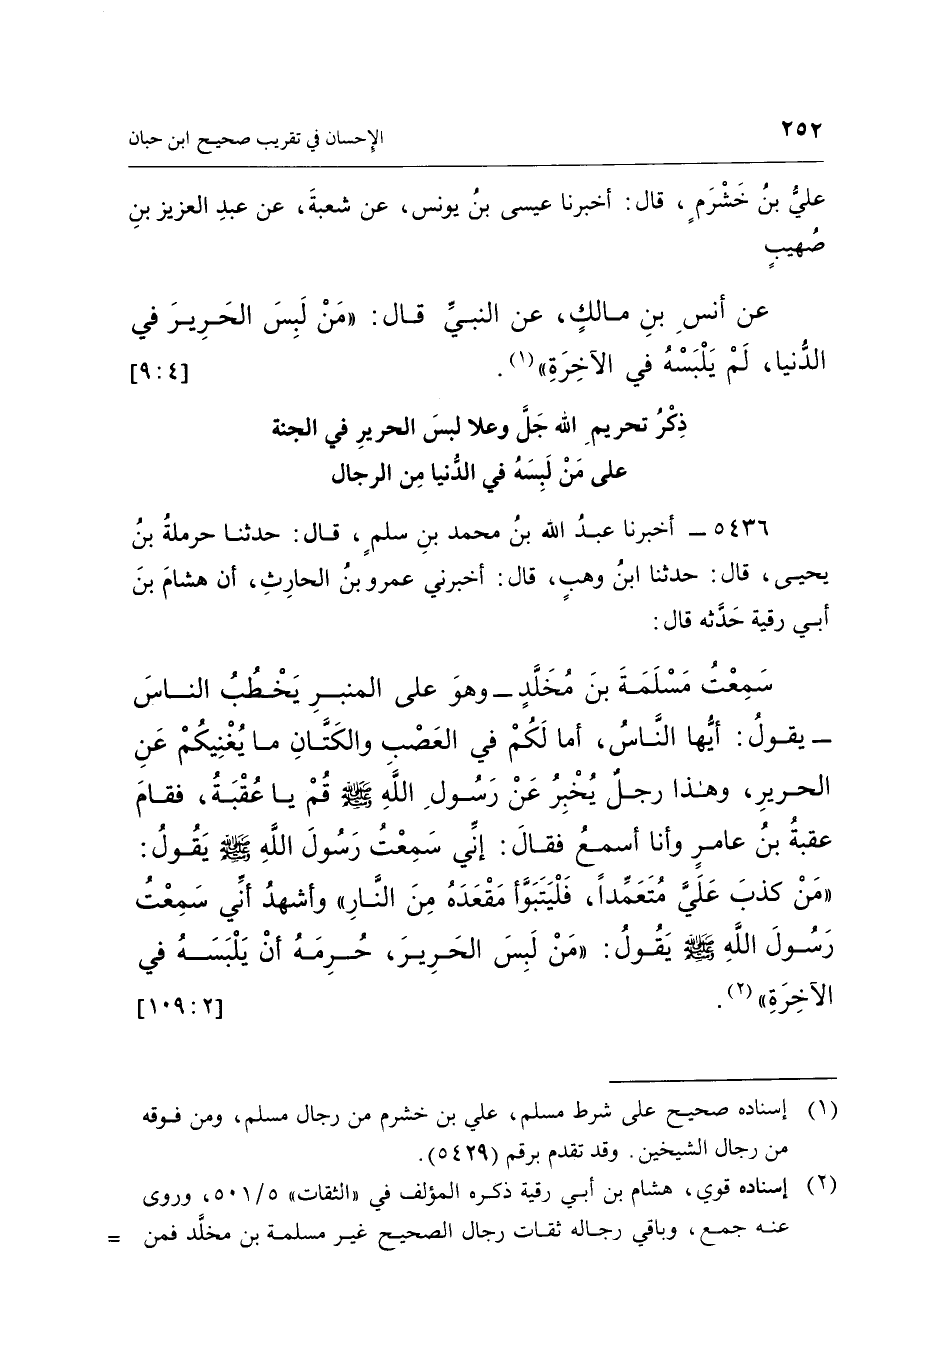 ٢٥٢
الإحسان في تقريب صحيح ابن حبان
عليُّ بنُ خَشْرَمٍ، قال: أخبرنا عيسى بنُ يونس، عن شعبةَ، عن عبدِ العزيز بنِ
صُهيبٍ
عن أنسِ بنِ مالكٍ، عن النبيِّ قال: «مَنْ لَبِسَ الحَرِيرَ في
الدُّنيا، لَمْ يَلْبَسْهُ في الآخِرَةِ»(١). [٩:٤]
ذِكْرُ تحريمِ الله جَلَّ وعلا لبسَ الحريرِ في الجنة
على مَنْ لَبِسَهُ في الدُّنيا مِن الرجال
٥٤٣٦ ـ أخبرنا عبدُ الله بنُ محمد بنِ سلمٍ، قال: حدثنا حرملةُ بنُ
يحيى، قال: حدثنا ابنُ وهبٍ، قال: أخبرني عمرو بنُ الحارثِ، أن هشامَ بنَ
أبي رقية حَدَّثه قال:
سَمِعْتُ مَسْلَمَةَ بنَ مُخَلَّدٍ ـ وهوَ على المنبرِ يَخْطُبُ الناسَ
ـ يقولُ: أيُّها النَّاسُ، أما لَكُمْ في العَصْبِ والكَتَّانِ ما يُغْنِيكُمْ عَنِ
الحريرِ، وهذا رجلٌ يُخْبِرُ عَنْ رَسُولِ اللَّهِ ﷺ قُمْ يا عُقْبَةُ، فقامَ
عقبةُ بنُ عامرٍ وأنا أسمعُ فقالَ: إنِّي سَمِعْتُ رَسُولَ اللَّهِ ﷺ يَقُولُ:
«مَنْ كذبَ عَلَيَّ مُتَعَمِّداً، فَلْيَتَبَوَّأ مَقْعَدَهُ مِنَ النَّارِ» وأشهدُ أنِّي سَمِعْتُ
رَسُولَ اللَّهِ ﷺ يَقُولُ: «مَنْ لَبِسَ الحَرِيرَ، حُرِمَهُ أنْ يَلْبَسَهُ في
الآخِرَةِ»(٢). [١٠٩:٢]
(١) إسناده صحيح على شرط مسلم، علي بن خشرم من رجال مسلم، ومن فوقه
من رجال الشيخين. وقد تقدم برقم (٥٤٢٩).
(٢) إسناده قوي، هشام بن أبي رقية ذكره المؤلف في «الثقات» ٥٠١/٥، وروى
عنه جمع، وباقي رجاله ثقات رجال الصحيح غير مسلمة بن مخلَّد فمن =